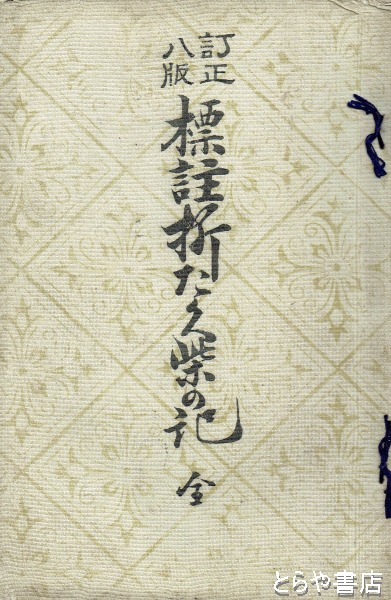 訂正
八版
標註折たく柴の記 全
とらや書店